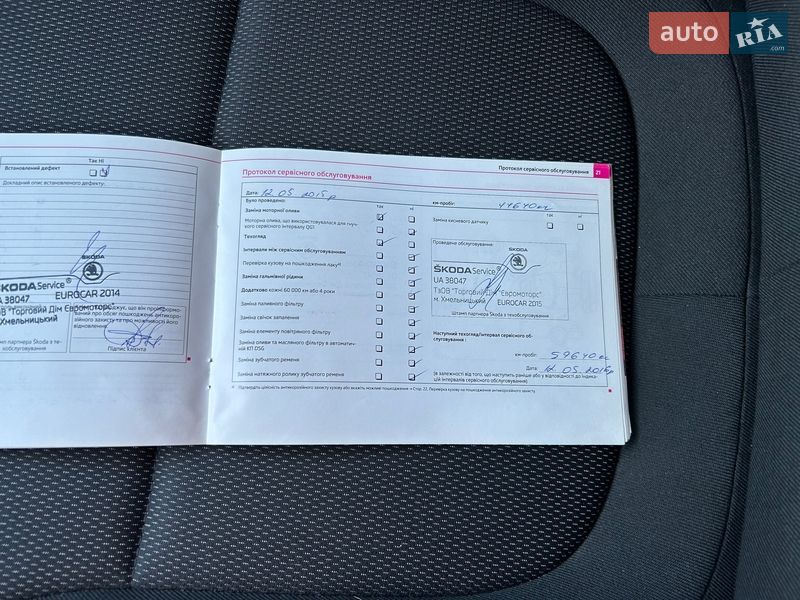 auto RIA.com
Так Ні
Встановлений дефект
Докладний опис встановленого дефекту:
ŠKODA
ŠKODA Service
EUROCAR 2014
A 38047
ОВ "Торговий Дім "Євромоторс"
Хмельницький
рджує, що він проінформо-
ваний про обсяг пошкоджень антикорозі-
йного захисту та про можливості його
відновлення.
мп партнера Skoda з те-
хобслуговування
Підпис клієнта
Протокол сервісного обслуговування
Протокол сервісного обслуговування 21
Дата: 12.05.2015р
км-пробіг: 44640км
Було проведено:
так ні
Заміна моторної оливи
Моторна олива, що використовувалася для гнуч-
кого сервісного інтервалу QG1
Техогляд
Інтервали між сервісним обслуговуванням
Перевірка кузову на пошкодження лаку¹⁾
Заміна гальмівної рідини
Додатково кожні 60 000 км або 4 роки
Заміна паливного фільтру
Заміна свічок запалення
Заміна елементу повітряного фільтру
Заміна оливи та масляного фільтру в автоматич-
ній КП DSG
Заміна зубчатого ременя
Заміна натяжного ролику зубчатого ременя
так ні
Заміна кисневого датчику
Проведене обслуговування:
ŠKODA
ŠKODA Service
UA 38047
ТзОВ "Торговий Дім "Євромоторс"
м. Хмельницький EUROCAR 2015
Штамп партнера Skoda з техобслуговування
Наступний техогляд/інтервал сервісного об-
слуговування:
км-пробіг: 59640км
Дата: 12.05.2016р
(в залежності від того, що наступить раніше або у відповідності до індика-
цій інтервалів сервісного обслуговування)
¹⁾ Підтвердіть цілісність антикорозійного захисту кузову або вкажіть можливі пошкодження → Стор. 22, Перевірка кузову на пошкодження антикорозійного захисту.